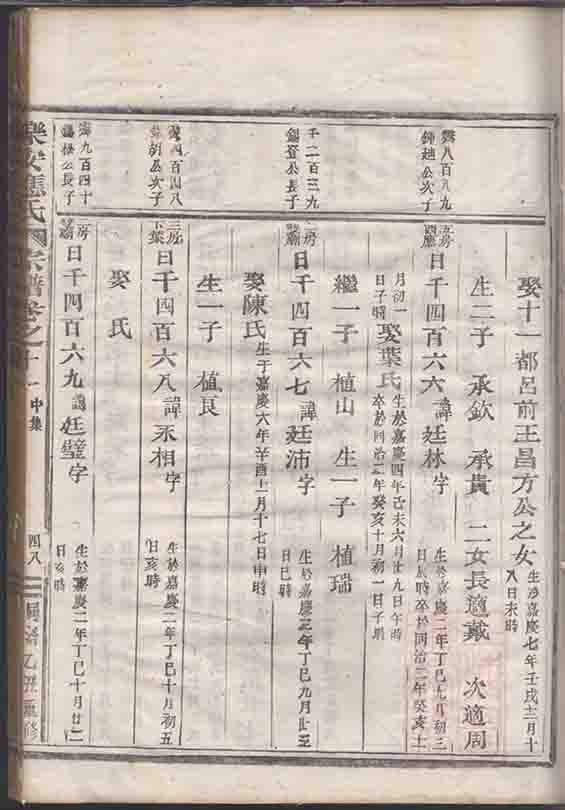 娶十一都呂前王昌方公之女 生於嘉慶七年壬戌十二月十
八日未時
生二子 承欽 承貴 二女長適戴 次適周
八百八九
鍾公次子
房
曰千四百六六諱廷林字 生於嘉慶二年丁巳九月初三
日辰時卒於同治二年癸亥十
月初一
日子時 娶葉氏 生於嘉慶四年己未六月廿九日午時
卒於同治二年癸亥十月初一日子時
繼一子 植山 生一子 植瑞
千二百三九
錫登公長子
房
曰千四百六七諱廷沛字 生於嘉慶二年丁巳九月廿三
日巳時
娶陳氏 生于嘉慶六年辛酉十一月十七日申時
生一子 植良
四百四八
胡公次子
三房
下葉
曰千四百六八諱永相字 生於嘉慶二年丁巳十月初五
日亥時
娶 氏
九百四十
公長子
房
曰千四百六九諱廷璧字 生於嘉慶二年丁巳十月廿二
日亥時
樂安應氏宗譜卷之十一 中集 四八 同治乙丑重修